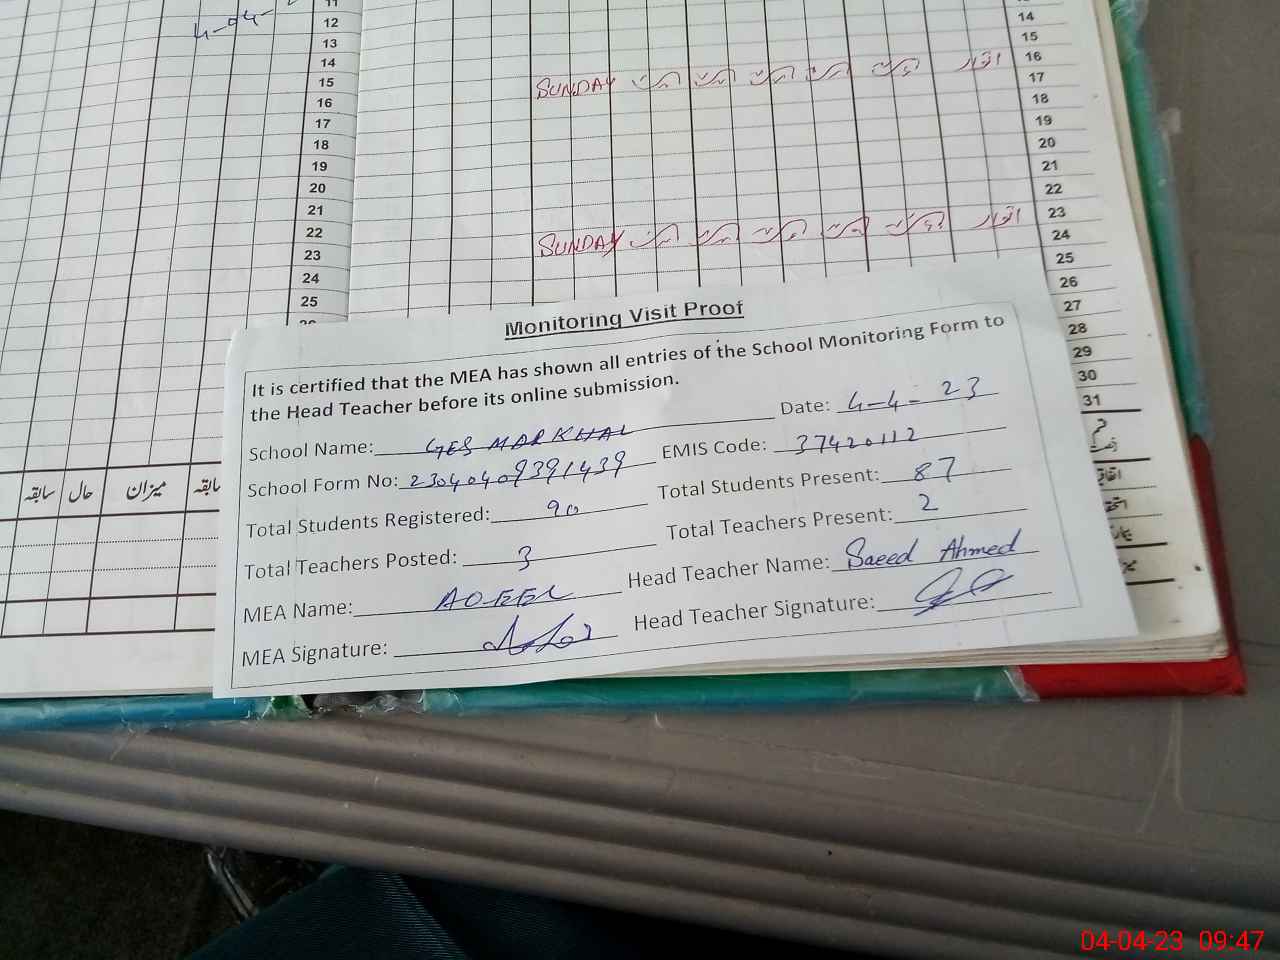 4-04-
11
12
13
14
15
16
17
18
19
20
21
22
23
24
25
14
15
16
17
18
19
20
21
22
23
24
25
26
27
28
29
30
31
SUNDAY اتوار
SUNDAY اتوار
سابقہ حال میزان
Monitoring Visit Proof
It is certified that the MEA has shown all entries of the School Monitoring Form to
the Head Teacher before its online submission.
School Name: GES MARKHAL Date: 4-4-23
School Form No: 23040409391439 EMIS Code: 37420112
Total Students Registered: 90 Total Students Present: 87
Total Teachers Posted: 3 Total Teachers Present: 2
MEA Name: Head Teacher Name: Saeed Ahmed
MEA Signature: Head Teacher Signature:
04-04-23 09:47